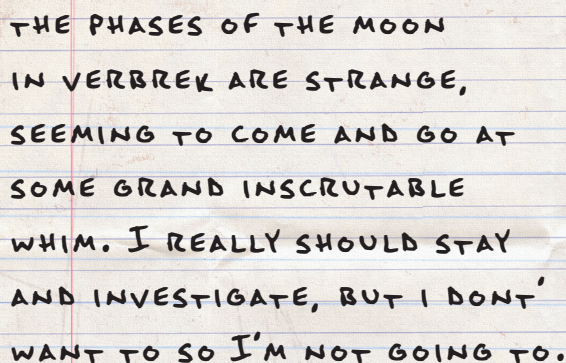 THE PHASES OF THE MOON
IN VERBREK ARE STRANGE,
SEEMING TO COME AND GO AT
SOME GRAND INSCRUTABLE
WHIM. I REALLY SHOULD STAY
AND INVESTIGATE, BUT I DONT'
WANT TO SO I'M NOT GOING TO.